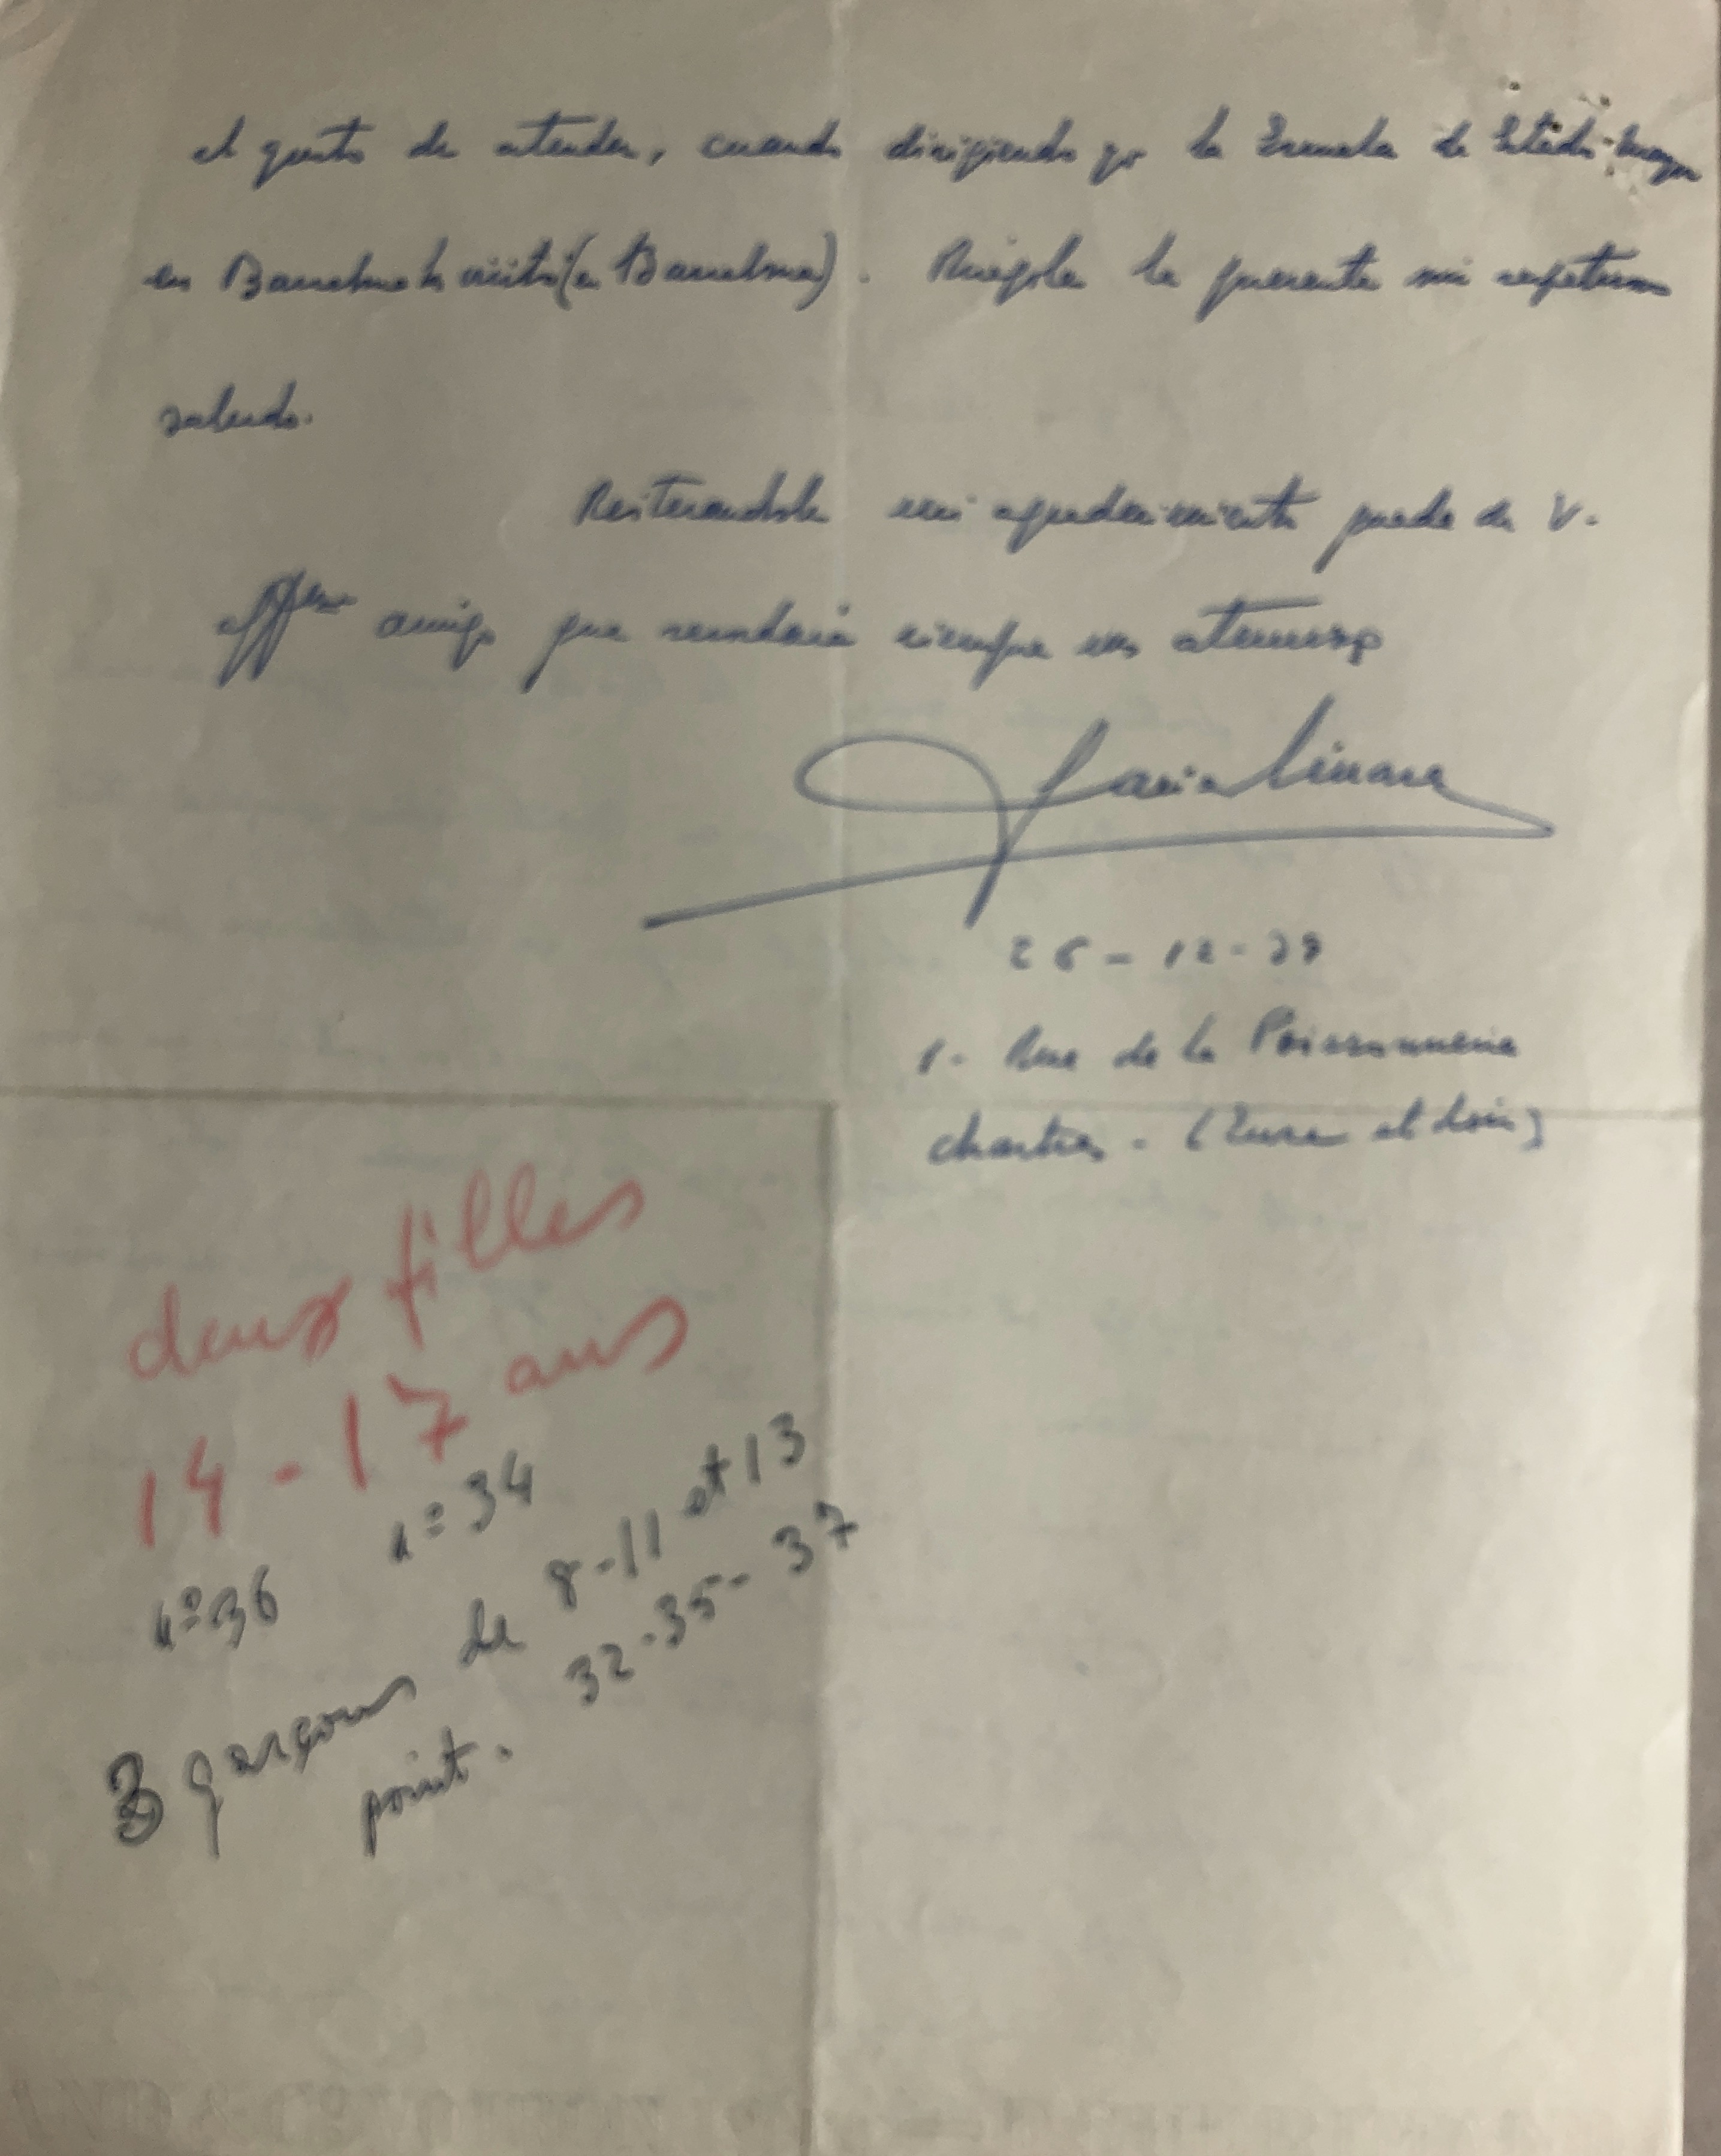 el gusto de atender, cuando dirigiendo yo la Escuela de Estado Mayor
en Barcelona la visitó (a Barcelona). Ruégole le presente mi respetuoso
saludo.
Reiterandole mi agradecimiento queda de V.
affmo amigo que recordará siempre sus
26-12-39
1- Rue de la Poissonnerie
Chartres. (Eure et Loir)
deux filles
14-17 ans
nº 36 nº 34
3 garçons de 8-11 et 13
point. 32-35-37